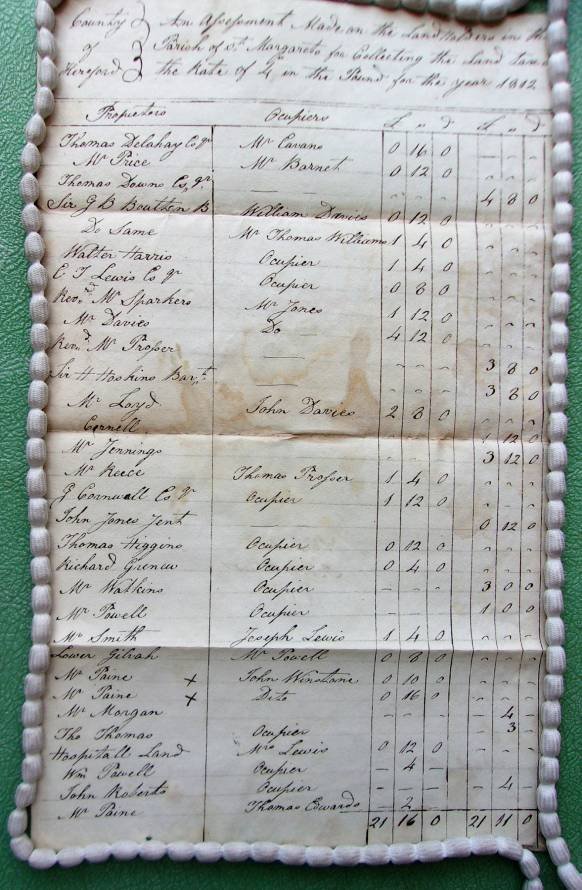 County } An Assessment Made on the Land Holders in the
of } Parish of St. Margarets for Collecting the Land tax
Hereford } the Rate of 4s in the Pound for the year 1812
Proprietors Ocupiers £ " d £ " d
Thomas Delahay Esqr Mr Cavano 0 16 0
Mr Price Mr Barnet 0 12 0
Thomas Downs Esqr — 4 8 0
Sir G B Boughton B William Davies 0 12 0
Do Same Mr Thomas Williams 1 4 0
Walter Harris Ocupier 1 4 0
C T Lewis Esqr Ocupier 0 8 0
Revnd Mr Sparkers Mr Jones 1 12 0
Mr Davies Do 4 12 0
Revnd Mr Prosser — 3 8 0
Sir H Hoskins Bart — 3 8 0
Mr Loyd John Davies 2 8 0
Cornell 1 12 0
Mr Jennings 3 12 0
Mr Reece Thomas Prosser 1 4 0
Cornwall Esqr Ocupier 1 12 0
John Jones Jent — 0 12 0
Thomas Higgins Ocupier 0 12 0
Richard Ocupier 0 4 0
Mr Watkins Ocupier – – – 3 0 0
Mr Powell Ocupier – – – 1 0 0
Mr Smith Joseph Lewis 1 4 0
Lower Gilvah Mr Powell 0 8 0
Mr Paine x John Winstone 0 10 0
Mr Paine x Dito 0 16 0
Mr Morgan – – – – 4 –
Tho Thomas Ocupier 3
Hospitall Land Mrs Lewis 0 12 0
Wm Powell Ocupier – 4 –
John Roberts Ocupier – 4 –
Mr Paine Thomas Edwards – 2 –
21 16 0 21 11 0